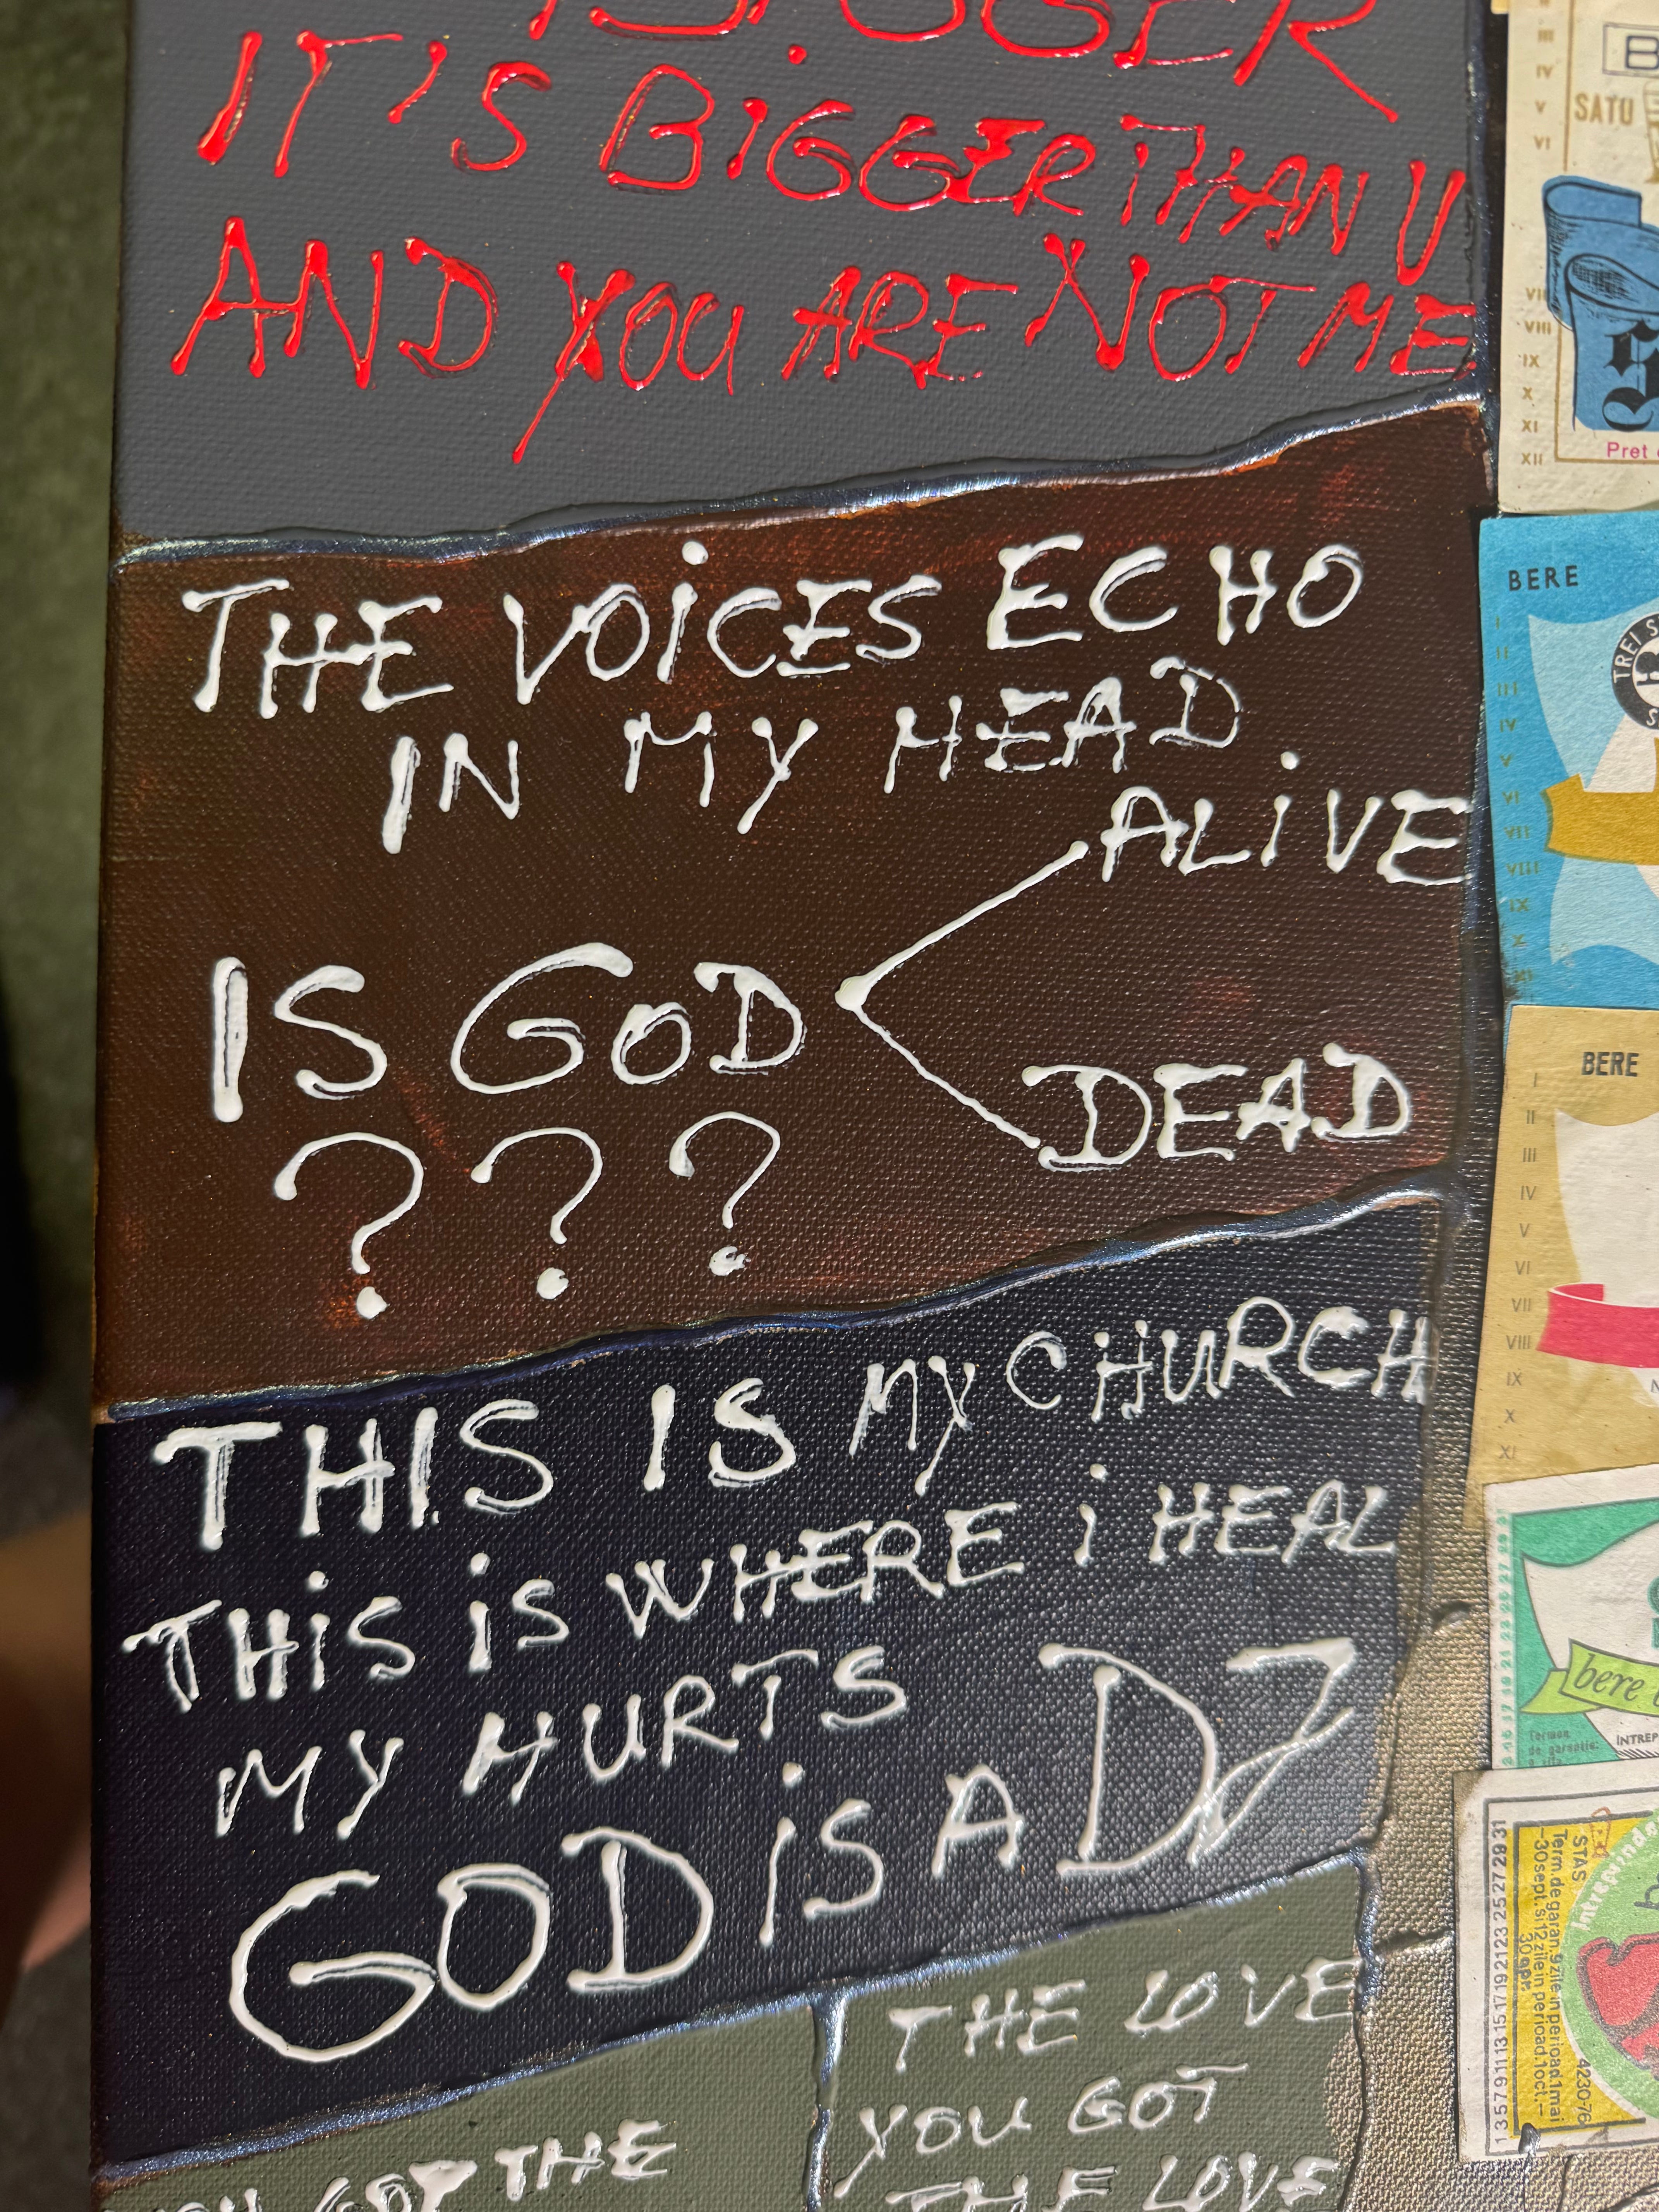 IT'S BiGGER THAN U
AND YOU ARE NOT ME
THE VOiCES ECHO
IN MY HEAD.
IS GOD
ALiVE
DEAD
? ? ?
THIS IS MY CHURCH
THiS iS WHERE i HEAL
MY HURTS
GOD iS A DJ
GOT THE
THE LOVE
YOU GOT
THE LOVE
SATU
IV
V
VI
VIII
IX
X
XI
XII
Pret
BERE
I
II
III
IV
V
VI
VII
VIII
IX
X
BERE
I
II
III
IV
V
VI
VII
VIII
IX
X
XI
bere
Termen
de garantie:
INTREP
STAS
4230-76
Term. de garan. 9 zile in perioad. 1 mai
-30 sept. si 12 zile in perioad. 1 oct.-
30 apr.
1 3 5 7 9 11 13 15 17 19 21 23 25 27 29 31